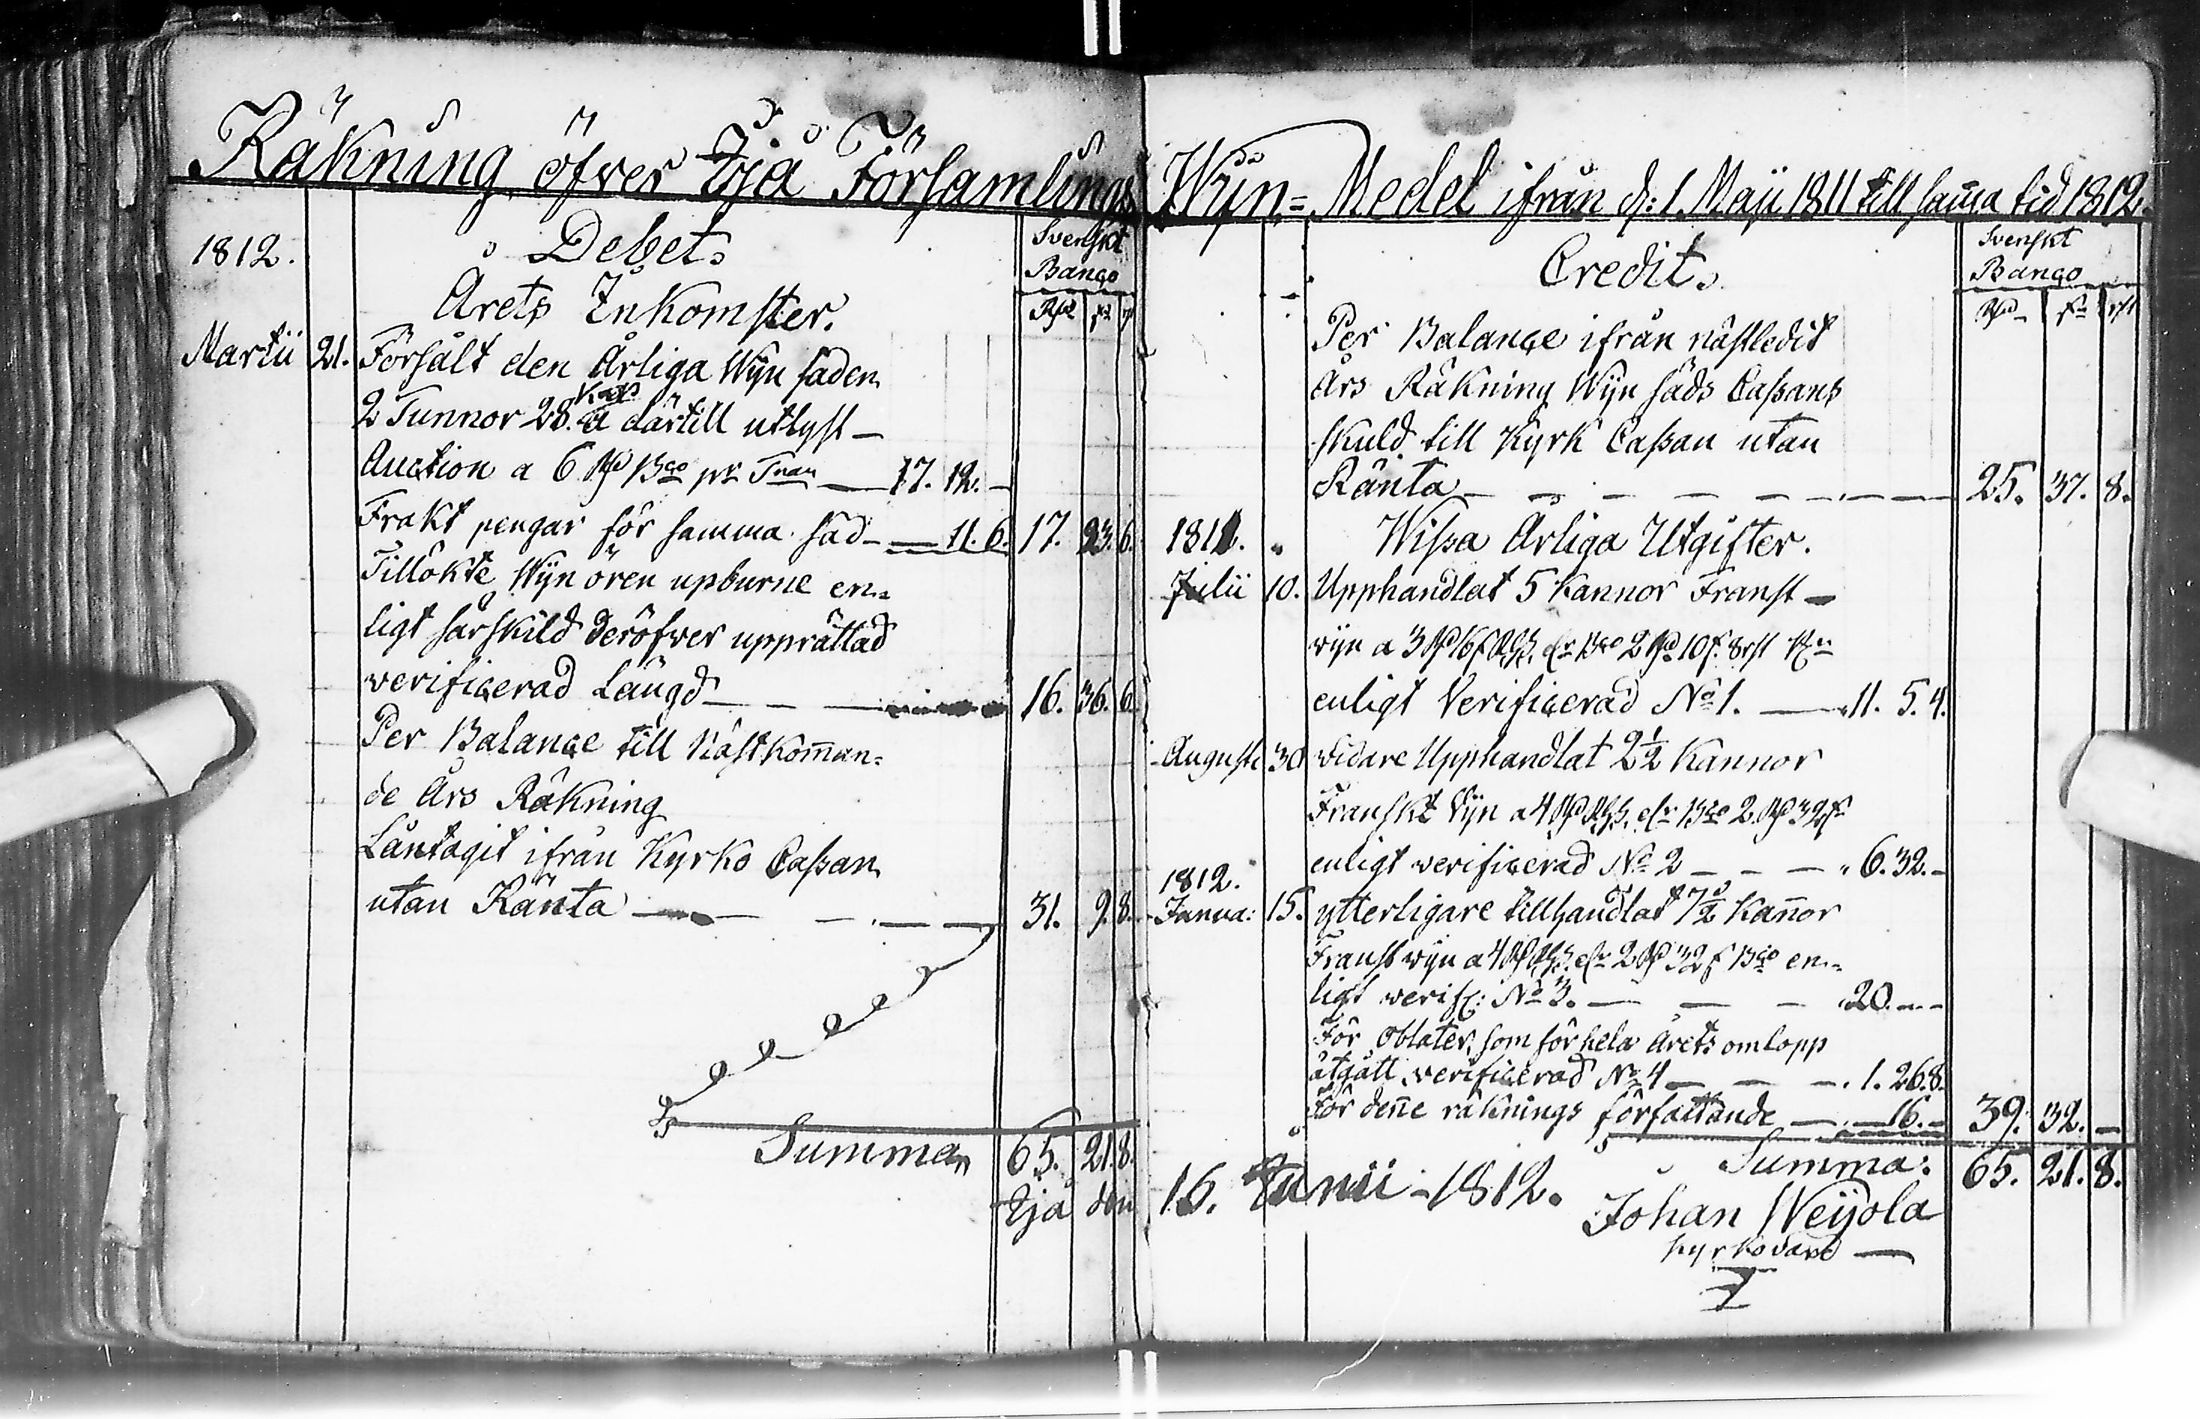 Räkning öfver Ijå Församlings
1812.
Debet.
Svenskt
Banco
Årets Inkomster.
Rd s r
Martii 21. Försålt den Årliga Wijn säden
2 Tunnor 28. Kap a därtill utlyst
Auction a 6 Rd Bco pr Tnan 17. 12. -
Frakt pengar för samma säd 11. 6. 17. 23. 6.
Tillökte Wijn ören upburne en=
ligt särskild deröfwer upprättad
verificerad Längd 16. 36. 6.
Per Balance till Nästkom̅an=
de Års Räkning
Låntagit ifrån Kyrko Cassan
utan Ränta 31. 9. 8.
Summa 65. 21. 8.
Ijå den
Wijn= Medel ifrån d: 1. Maji 1811 till sam̅a tid 1812.
Credit.
Svenskt
Banco
Rd s rst
Per Balance ifrån nästledit
Års Räkning Wijn säds Cassans
skuld till Kyrk Cassan utan
Ränta 25. 37. 8.
1811. Wissa Årliga Utgifter.
Julii 10. Upphandlat 5 Kannor Franst
wijn a 3 Rd 16 s RgS. elr Bco 2 Rd 10 s. 8 rst
enligt Verificerad No 1. 11. 5. 4.
Augusti 30. vidare Upphandlat 2 1/2 Kannor
Franskt Vijn a 4 Rd RgS. elr Bco 2. Rd 32 s
enligt verificerad No 2 6. 32. -
1812.
Janua: 15. ytterligare tillhandlat 7 1/2 Kan̅or
Franst wijn a 4 Rd RgS. elr 2 Rd 32 s Bco en=
ligt verif: No 3. 20. - -
För Oblater, som för hela Årets omlopp
åtgått verificerad No 4 1. 26. 8.
För den̅e räknings författande 16. - 39. 32. -
Summa. 65. 21. 8.
16. Junii 1812.
Johan Weijola
kyrkovärd